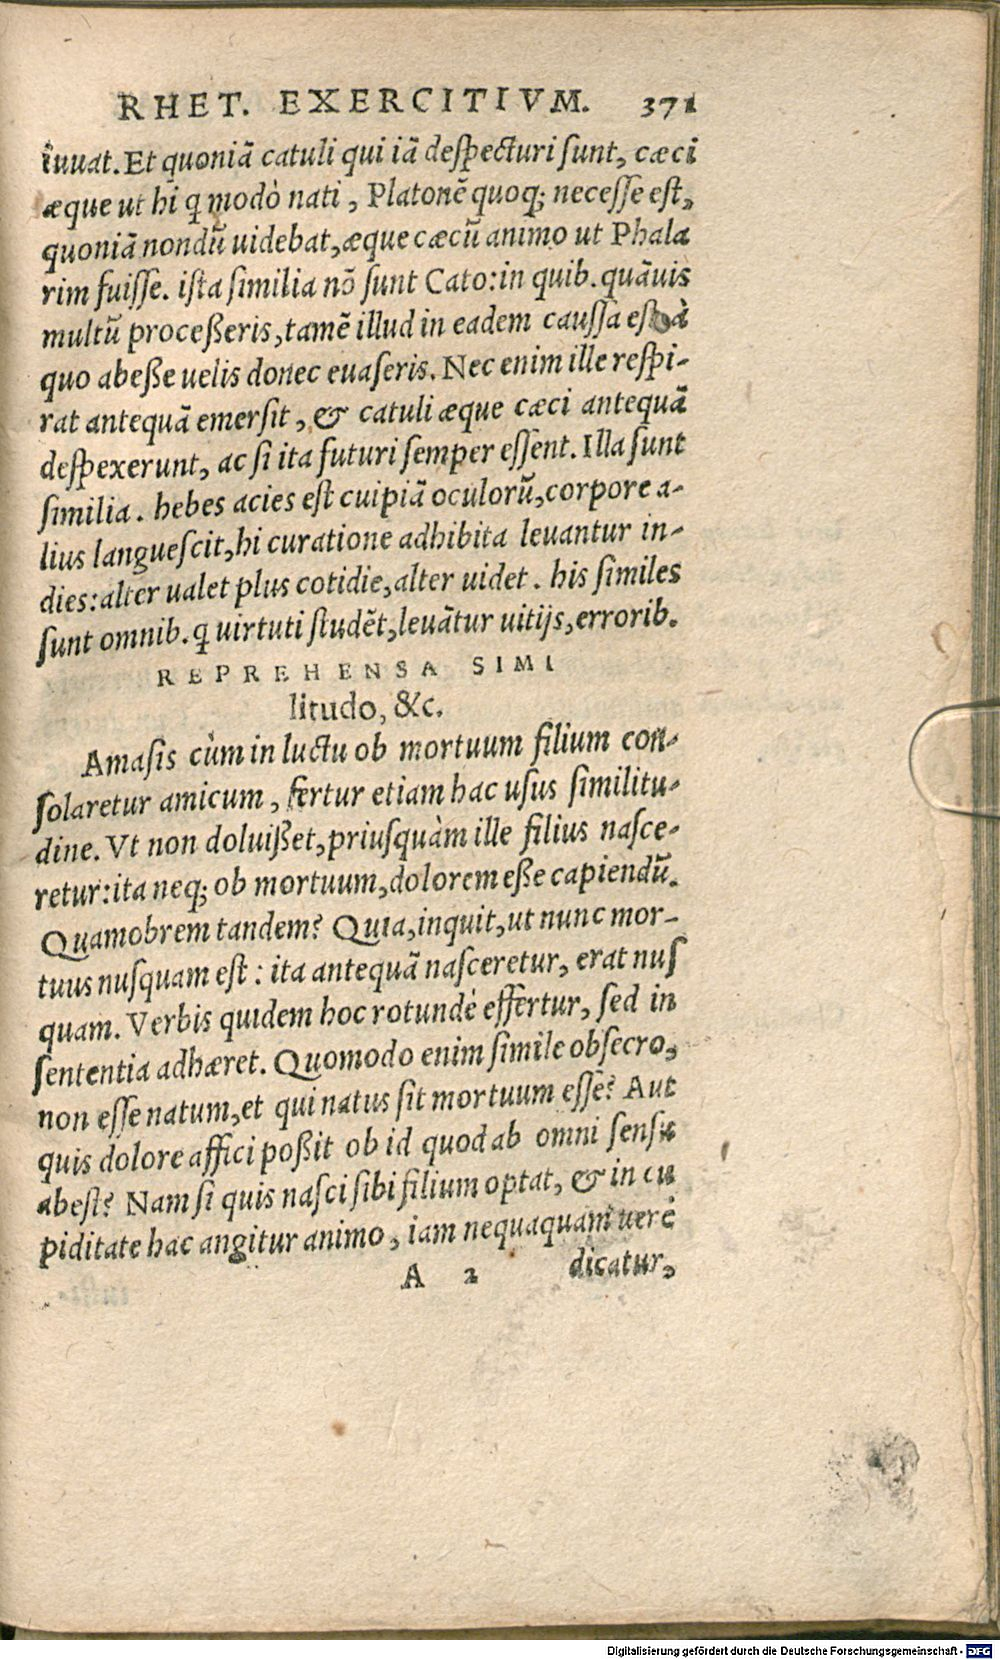 RHET. EXERCITIVM. 371
iuuat. Et quoniā catuli qui iā despecturi sunt, cæci
æque ut hi q modò nati, Platonē quoq; necesse est,
quoniā nondū uidebat, æque cæcū animo ut Phala
rim fuisse. ista similia nō sunt Cato: in quib. quāuis
multū proceßeris, tamē illud in eadem caussa est à
quo abeße uelis donec euaseris. Nec enim ille respi-
rat antequā emersit, & catuli æque cæci antequā
despexerunt, ac si ita futuri semper essent. Illa sunt
similia. hebes acies est cuipiā oculorū, corpore a-
lius languescit, hi curatione adhibita leuantur in-
dies: alter ualet plus cotidie, alter uidet. his similes
sunt omnib. q uirtuti studēt, leuātur uitijs, errorib.
REPREHENSA SIMI
litudo, &c.
Amasis cùm in luctu ob mortuum filium con-
solaretur amicum, fertur etiam hac usus similitu-
dine. Vt non doluißet, priusquàm ille filius nasce-
retur: ita neq; ob mortuum, dolorem eße capiendū.
Quamobrem tandem? Quia, inquit, ut nunc mor-
tuus nusquam est: ita antequā nasceretur, erat nus
quam. Verbis quidem hoc rotundè effertur, sed in
sententia adhæret. Quomodo enim simile obsecro,
non esse natum, et qui natus sit mortuum esse? Aut
quis dolore affici poßit ob id quod ab omni sensu
abest? Nam si quis nasci sibi filium optat, & in cu
piditate hac angitur animo, iam nequaquam uerè
A 2 dicatur,
Digitalisierung gefördert durch die Deutsche Forschungsgemeinschaft - DFG